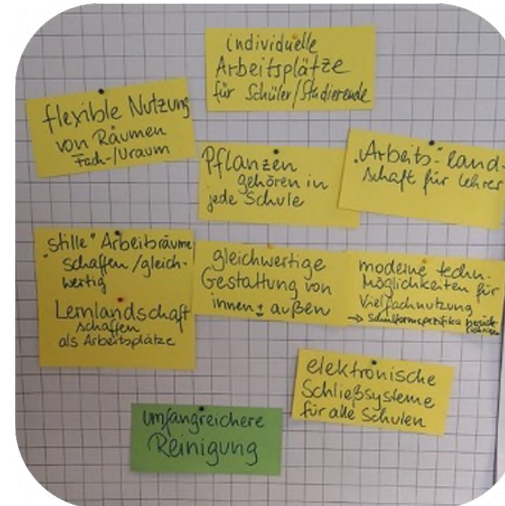 individuelle
Arbeitsplätze
für Schüler/Studierende
flexible Nutzung
von Räumen
Fach-/Uraum
Pflanzen
gehören in
jede Schule
"Arbeits"-land-
schaft für Lehrer
"stille" Arbeitsräume
schaffen/gleich-
wertig
Lernlandschaft
schaffen
als Arbeitsplätze
gleichwertige
Gestaltung von
innen + außen
moderne techn.
Möglichkeiten für
Vielfachnutzung
→ Schulformspezifika
elektronische
Schließsysteme
für alle Schulen
umfangreichere
Reinigung